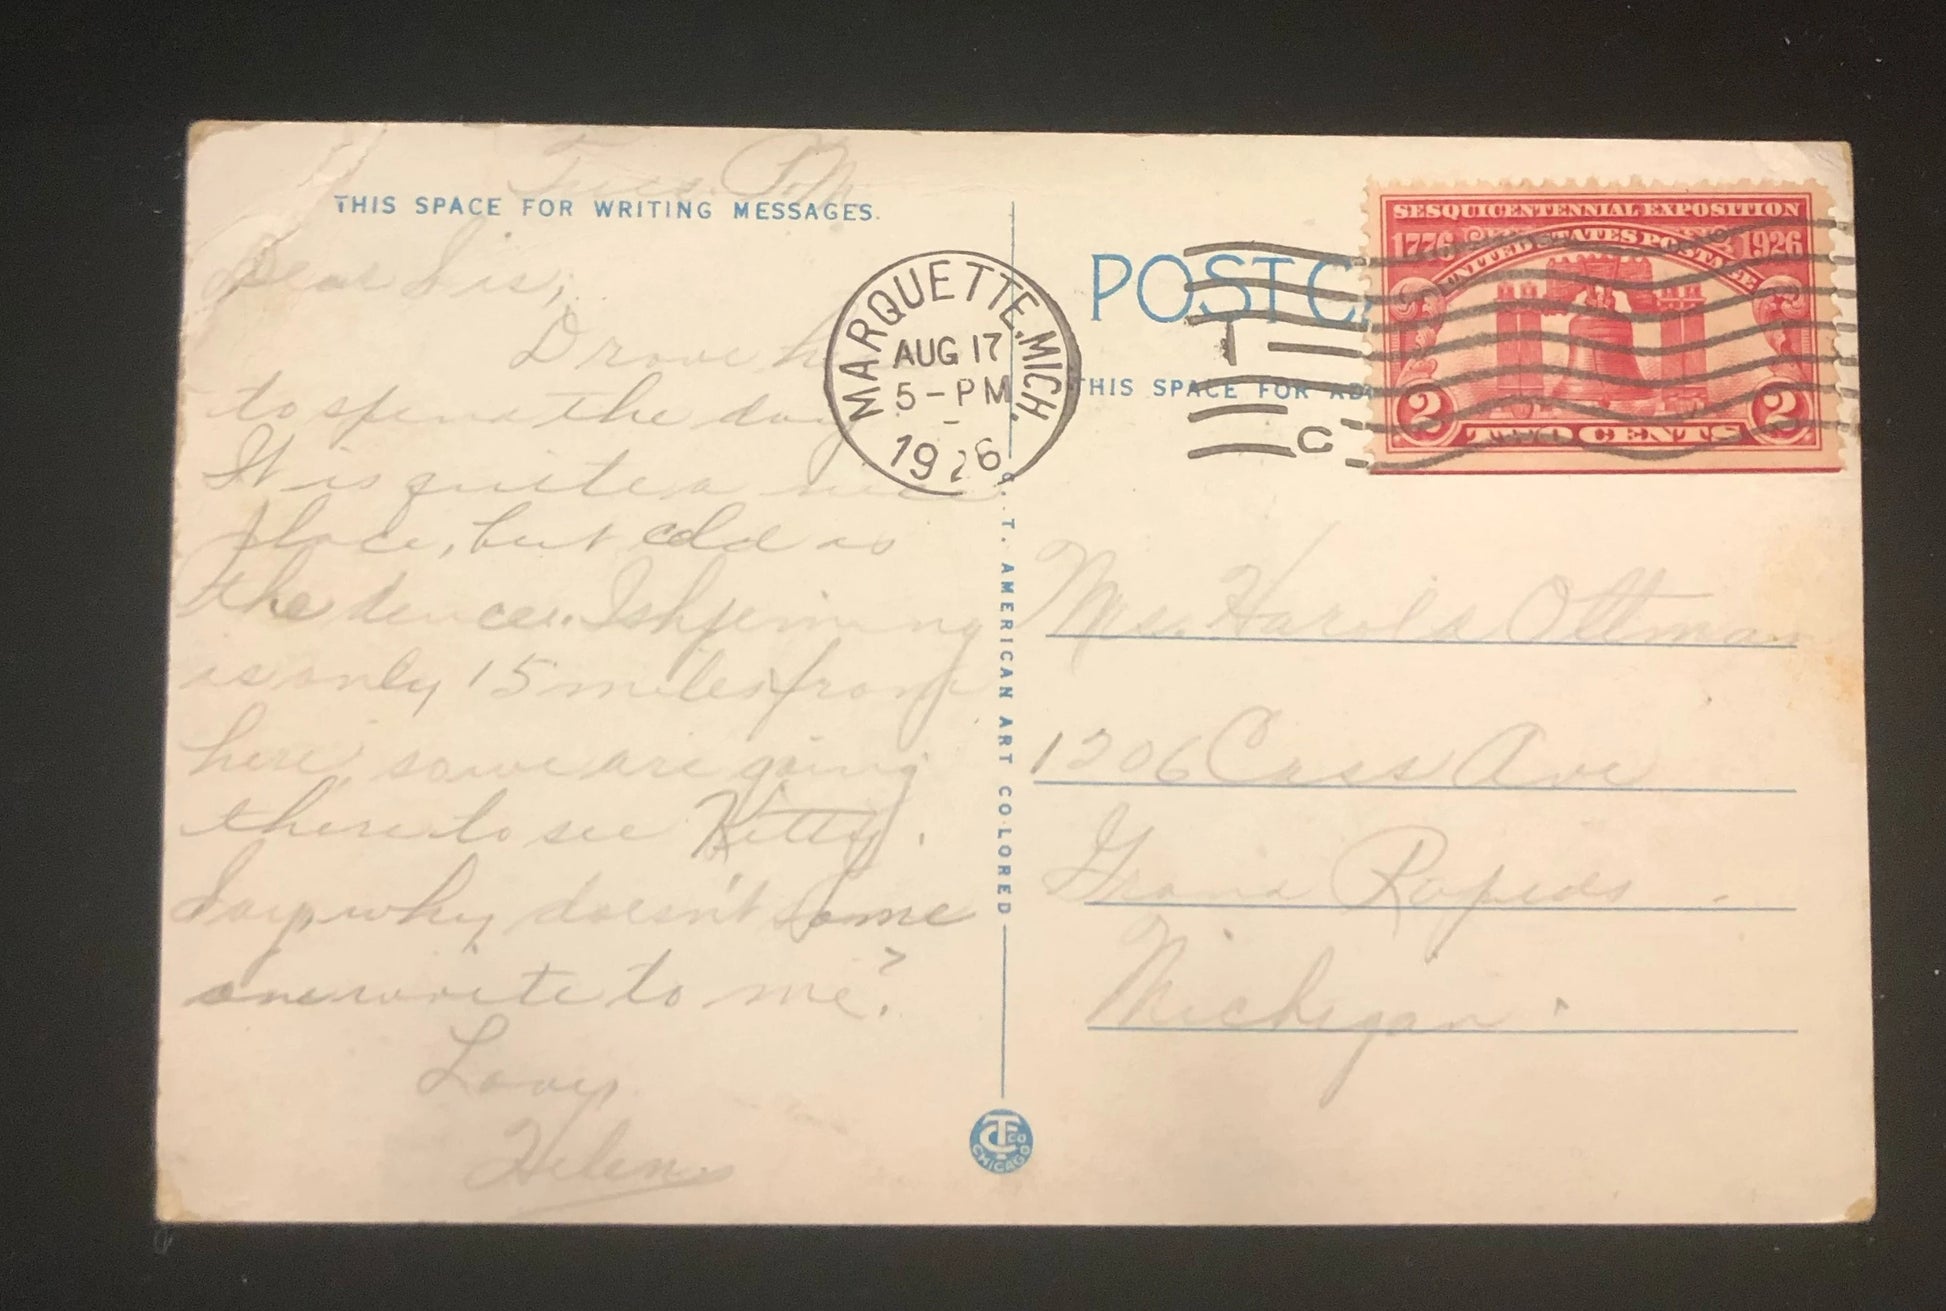 Tues. P.M.
THIS SPACE FOR WRITING MESSAGES.
Dear Sis;
Drove
to spend the day
It is quite a nice
place, but cold as
the deuce. Ishpeming
is only 15 miles from
here, so we are going
there to see Kitty.
Say, why doesn't some
one write to me?
Love,
Helen
MARQUETTE, MICH.
AUG 17
5-PM
1926
C. T. AMERICAN ART COLORED
CT CO
CHICAGO
POST CA
THIS SPACE FOR AD
1
C
SESQUICENTENNIAL EXPOSITION
1776 1926
UNITED STATES POSTAGE
2 2
TWO CENTS
Mrs. Harold Ottman
1206 Cass Ave
Grand Rapids
Michigan.